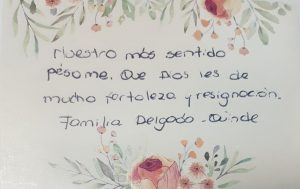 Nuestro más sentido
pésame. Que Dios les de
mucho fortaleza y resignación.
Familia Delgado - Quinde